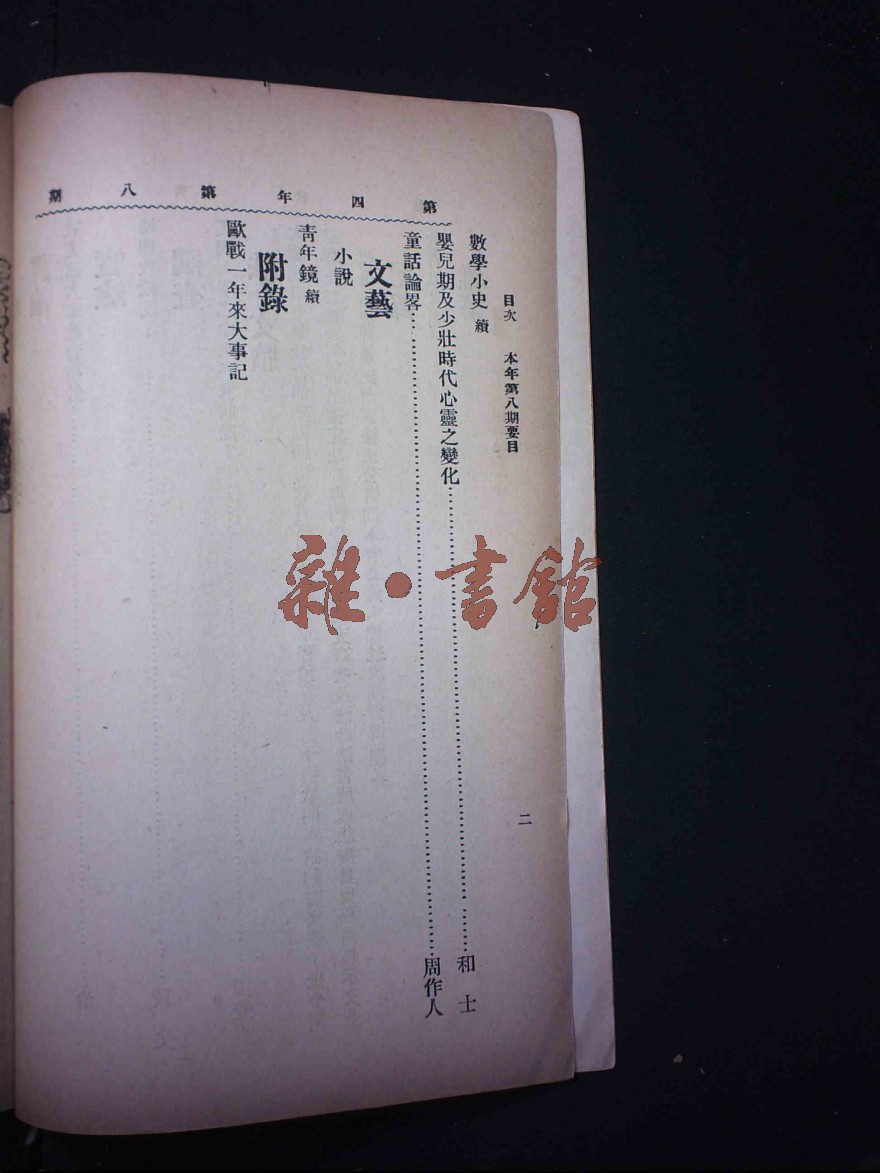 目次　本年第八期要目
二
第四年第八期
數學小史 續
嬰兒期及少壯時代心靈之變化……和士
童話論畧……周作人
文藝
小說
青年鏡 續
附錄
歐戰一年來大事記
雜·書館